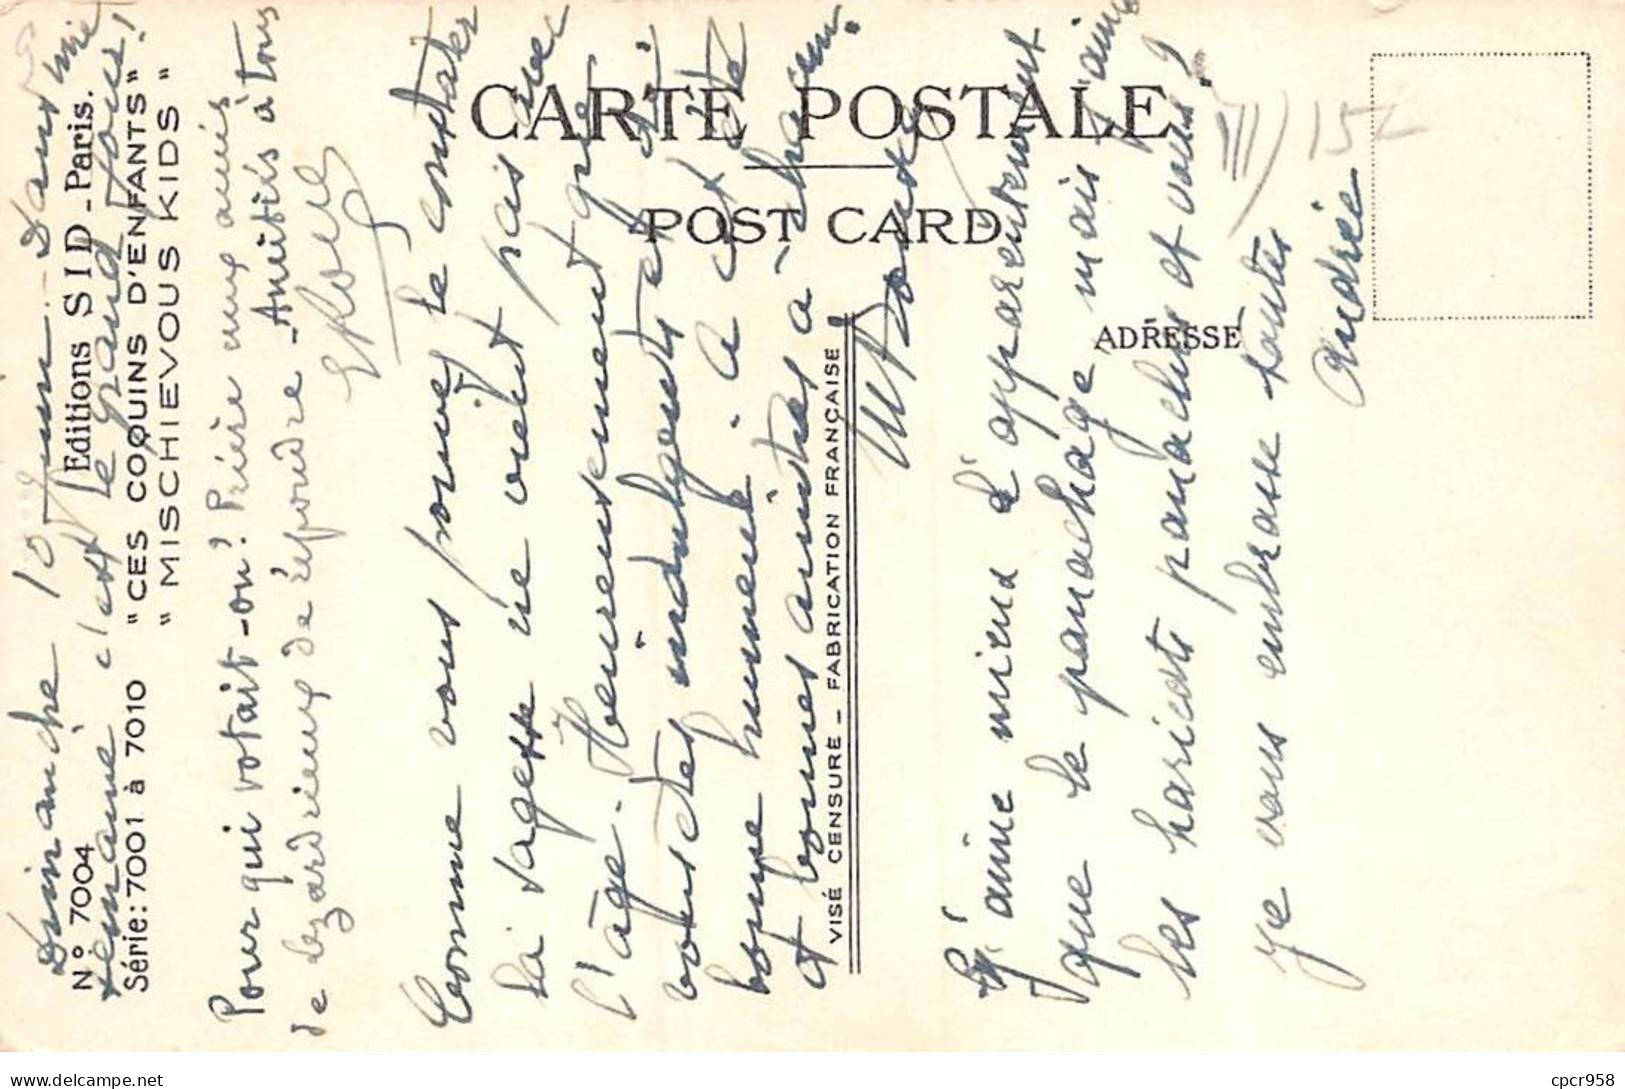 CARTE POSTALE
POST CARD
ADRESSE
Editions SID - Paris.
N° 7004
Série: 7001 à 7010
"CES COQUINS D'ENFANTS"
"MISCHIEVOUS KIDS"
VISÉ CENSURE _ FABRICATION FRANÇAISE
Dimanche 10 Juin - Dans une
semaine c'est le grand jour!
Pour qui votait-on? Prière aux amis
de lézardrieux de répondre - Amitiés à tous
Comme vous pouvez le constater
la sagesse ne vient pas avec
l'âge. Heureusement que
vous êtes indulgents et
bonne humeur. à
et bonnes amitiés à chacun.
J'aime mieux l'apparentement
que le panachage mais j'aime
les haricots panachés et vous?
Je vous embrasse toutes
Andrée
15
cpcr958